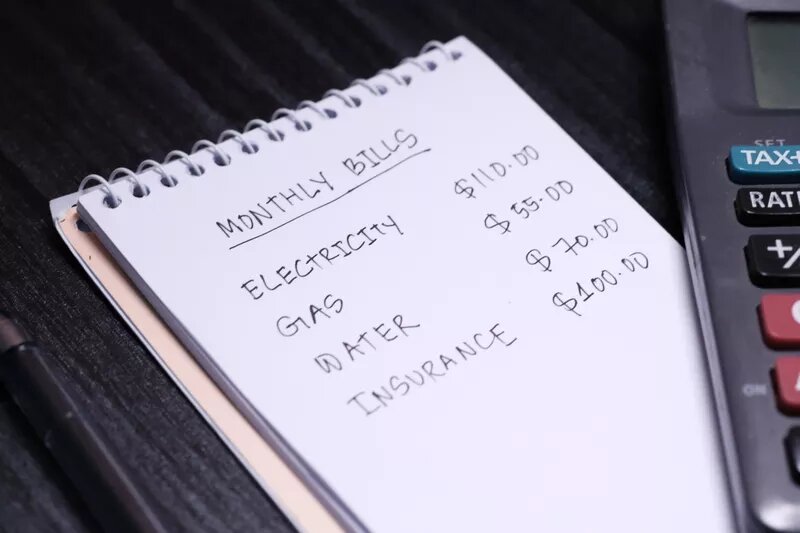 MONTHLY BILLS
ELECTRICITY $110.00
GAS $55.00
WATER $70.00
INSURANCE $100.00
SET
TAX+
RAT
+/
ON